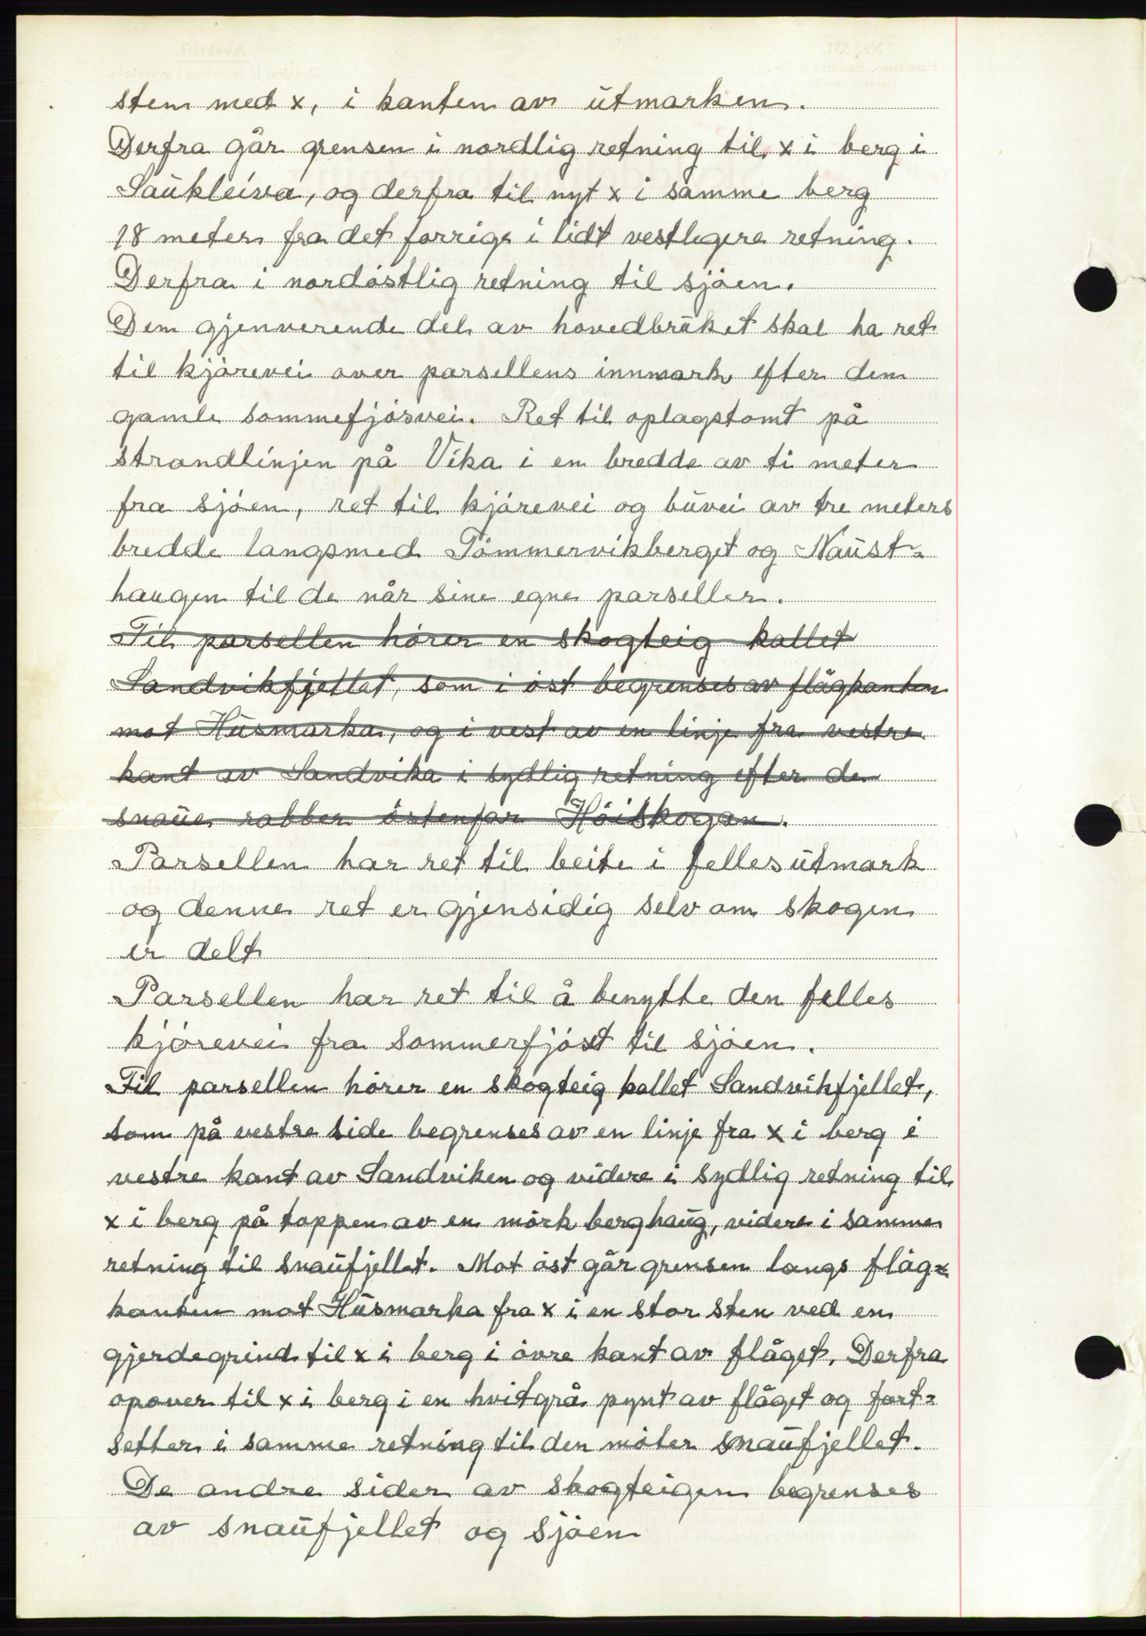 sten med x, i kanten av utmarken.
Derfra går grensen i nordlig retning til x i berg i
Saukleiva, og derfra til nyt x i samme berg
18 meter fra det forrige i lidt vestligere retning.
Derfra i nordøstlig retning til sjøen.
Den gjenværende del av hovedbruket skal ha ret
til kjørevei over parsellens innmark efter den
gamle sommefjøsvei. Ret til oplagstomt på
strandlinjen på Vika i en bredde av ti meter
fra sjøen, ret til kjørevei og buvei av tre meters
bredde langsmed Tømmervikberget og Naust-
haugen til de når sine egne parseller.
Til parsellen hører en skogteig kallet
Sandvikfjellet, som i øst begrenses av flågkanten
mot Husmarka, og i vest av en linje fra vestre
kant av Sandvika i sydlig retning efter de
snaue rabber østenfor Høiskogen.
Parsellen har ret til beite i felles utmark
og denne ret er gjensidig selv om skogen
er delt
Parsellen har ret til å benytte den felles
kjørevei fra sommerfjøst til sjøen.
Til parsellen hører en skogteig kallet Sandvikfjellet,
som på vestre side begrenses av en linje fra x i berg i
vestre kant av Sandviken og videre i sydlig retning til
x i berg på toppen av en mørk berghaug, videre i samme
retning til snaufjellet. Mot øst går grensen langs flåg-
kanten mot Husmarka fra x i en stor sten ved en
gjerdegrind til x i berg i øvre kant av flåget. Derfra
opover til x i berg i en hvitgrå pynt av flåget og fort-
setter i samme retning til den møter snaufjellet.
De andre sider av skogteigen begrenses
av snaufjellet og sjøen